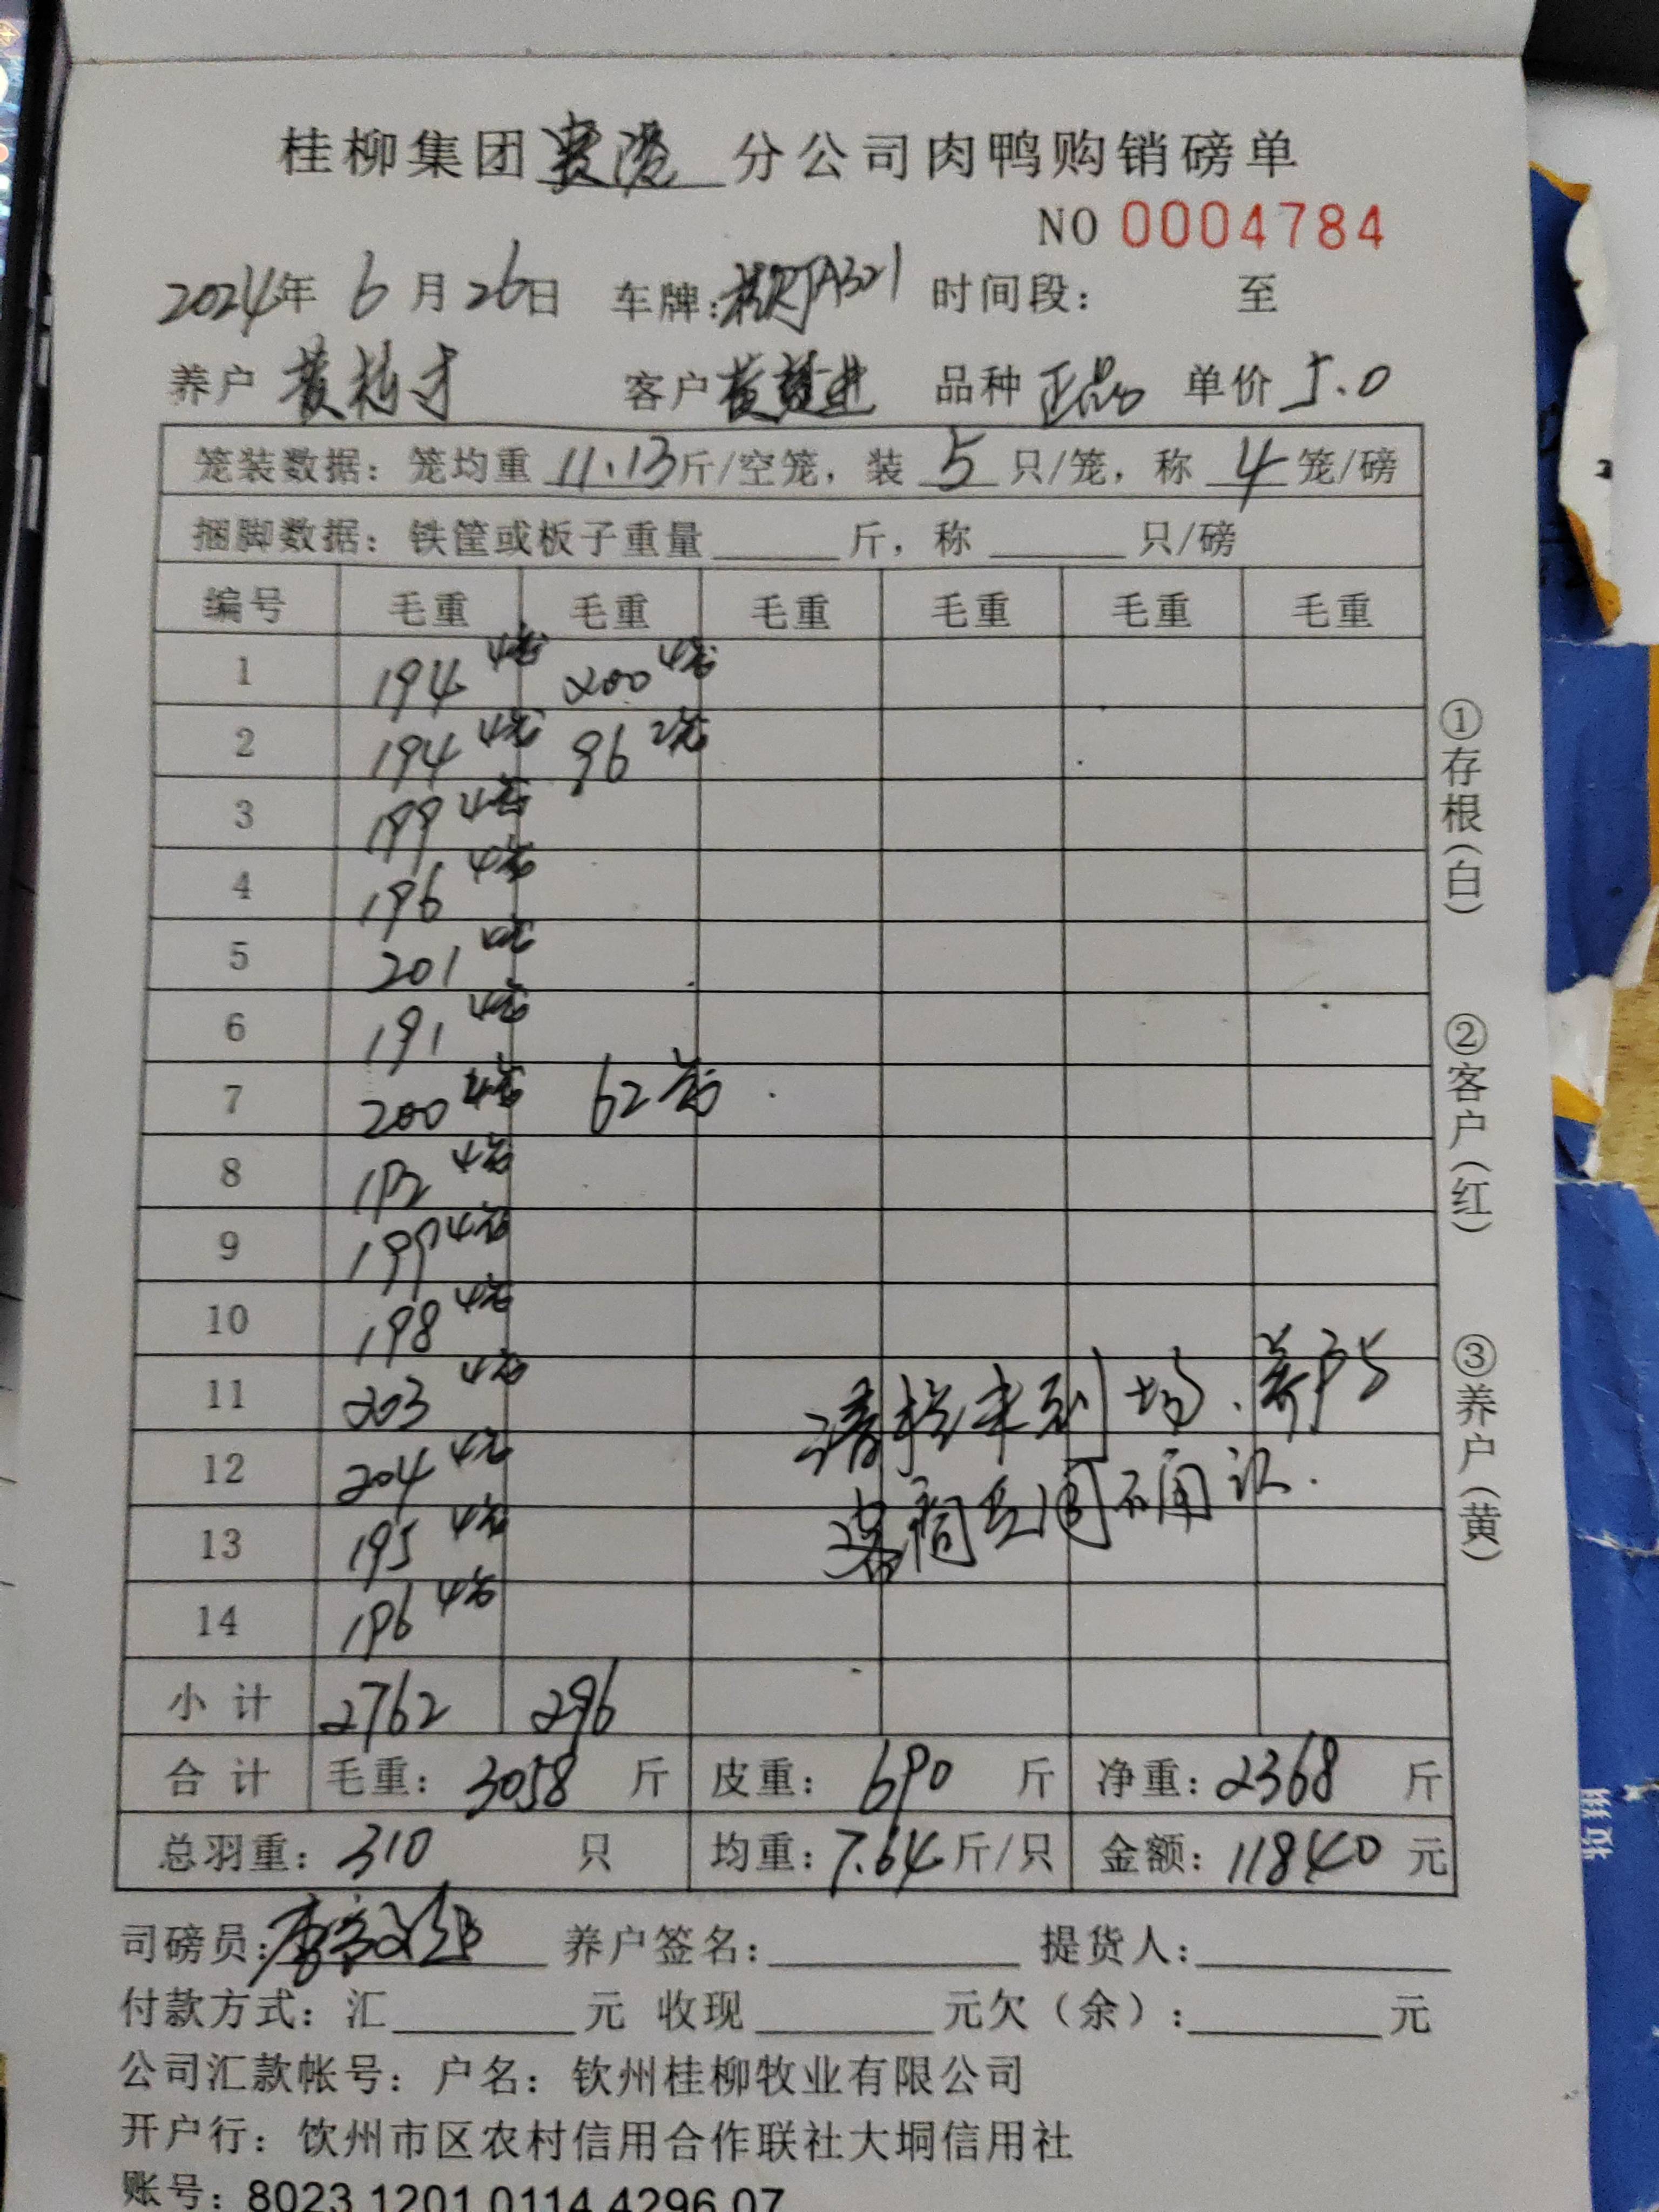 桂柳集团贵港分公司肉鸭购销磅单
NO 0004784
2024年 6月26日 车牌: 时间段: 至
养户 黄 才 客户 黄 进 品种 正品 单价 5.0
笼装数据: 笼均重 11.13斤/空笼, 装 5 只/笼, 称 4 笼/磅
捆脚数据: 铁筐或板子重量 斤, 称 只/磅
编号 毛重 毛重 毛重 毛重 毛重 毛重
1 194 4笼 200 4笼
2 194 4笼 96 2笼
3 199 4笼
4 196 4笼
5 201 4笼
6 191 4笼
7 200 4笼 62笼
8 192 4笼
9 199 4笼
10 198 4笼
11 203 4笼
12 204 4笼
13 195 4笼
14 196 4笼
未到场、养户与
确认.
小 计 2762 296
合 计 毛重: 3058 斤 皮重: 690 斤 净重: 2368 斤
总羽重: 310 只 均重: 7.64斤/只 金额: 11840 元
司磅员: 养户签名: 提货人:
付款方式: 汇 元 收现 元欠(余): 元
公司汇款帐号: 户名: 钦州桂柳牧业有限公司
开户行: 饮州市区农村信用合作联社大垌信用社
账号: 8023 1201 0114 4296 07
①存根(白)
②客户(红)
③养户(黄)